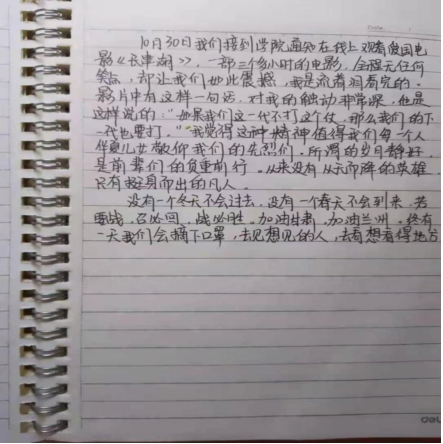 10月30日我们接到学院通知在线上观看爱国电
影《长津湖》,一部三个多小时的电影,全程无任何
笑点,却让我们如此震撼,我是流着泪看完的。
影片中有这样一句话,对我的触动非常深,他是
这样说的:"如果我们这一代不打这个仗,那么我们的下
一代也要打。"我觉得这种精神值得我们每一个人
华夏儿女敬仰我们的先烈们。所谓的岁月静好,
是前辈们的负重前行。从来没有从天而降的英雄,
只有挺身而出的凡人。
没有一个冬天不会过去,没有一个春天不会到来,若
要战,召必回,战必胜。加油甘肃,加油兰州。终有
一天我们会摘下口罩,去见想见的人,去看想看得地方
Date.
deli